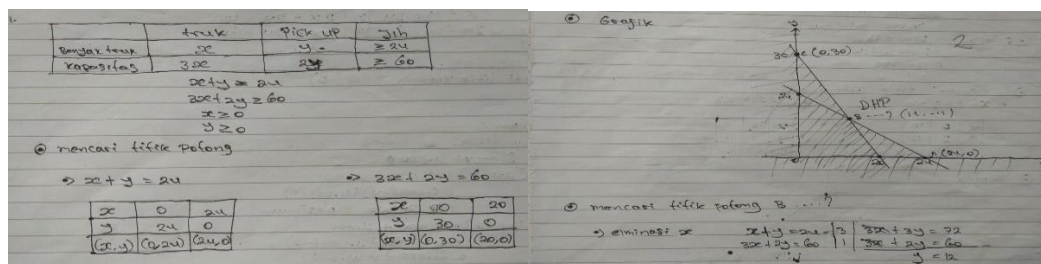 1.
truk Pick UP Jlh
Banyak truk x y ≥ 24
Kapasitas 3x 2y ≥ 60
x+y ≥ 24
3x+2y ≥ 60
x ≥ 0
y ≥ 0
mencari titik potong
⇒ x + y = 24
x 0 24
y 24 0
(x,y) (0,24) (24,0)
⇒ 3x + 2y = 60
x 0 20
y 30 0
(x,y) (0,30) (20,0)
Grafik
2
y
30 C (0,30)
24
DHP
B ....? (..., ...)
A (24,0)
0 20 24
mencari titik potong B ....?
⇒ eminasi x x + y = 24 3 3x + 3y = 72
3x + 2y = 60 1 3x + 2y = 60
y = 12